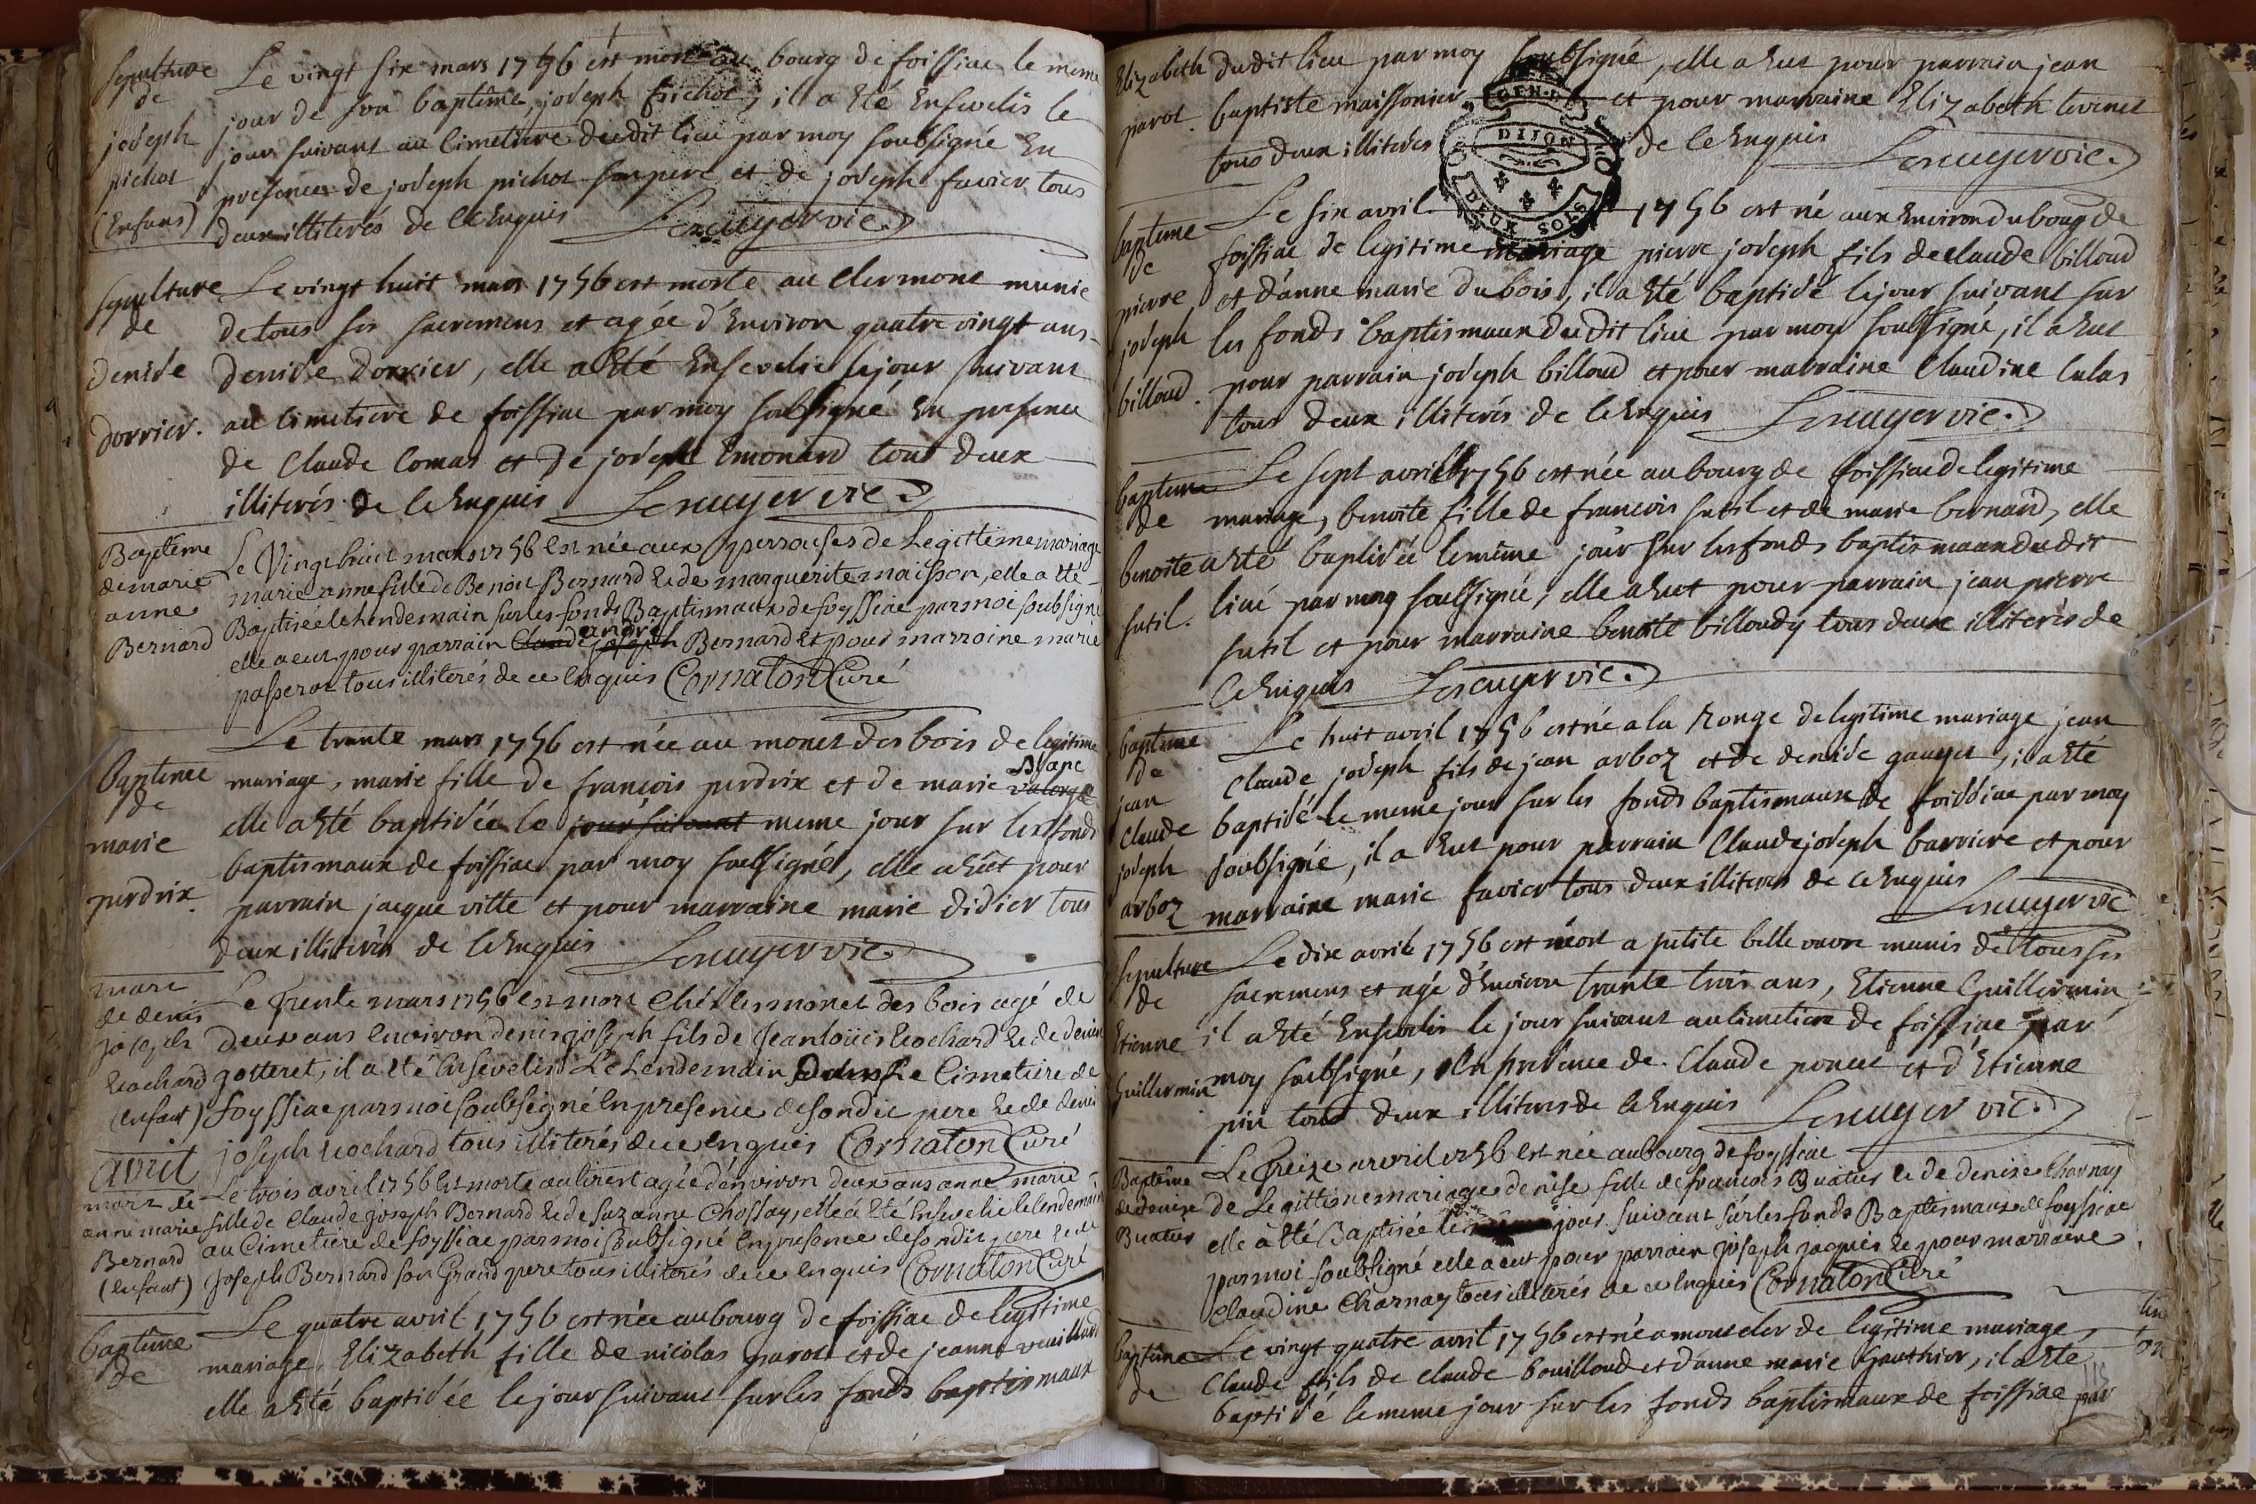 sepulture
de
joseph
pichot
(Enfans)
Le vingt six mars 1756 est mort au bourg de foissiac le meme
jour de son baptême, joseph pichot, il a Eté Ensevelis le
jour suivant au Cimetiere dudit lieu par moy soubsigné En
presence de joseph pichot son pere et de joseph favier tous
deux illiterés de ce Enquis Lescuyer vic.
sepulture
de
denise
dorrier.
Le vingt huit mars 1756 est morte au Clermont munie
de tous ses sacremens et agée d'Environ quatre vingt ans
denise dorrier, elle a Eté Ensevelie le jour suivant
au Cimetiere de foissiac par moy soubsigné En presence
de Claude Comas et de joseph Emonard tous deux
illiterés de ce Enquis Lescuyer vic.
Baptême
de marie
anne
Bernard
Le Vingt huit mars 1756 Est née aux perrouses de Legittime mariage
marie anne fille de Benoit Bernard Et de marguerite maisson, elle a Eté
Baptisée le lendemain sur les fonds Baptismaux de foyssiac par moi soubsigné
elle a eut pour parrain Claude joseph andré Bernard Et pour marraine marie
passerat tous illiterés de ce Enquis Cornaton Curé
Baptême
de
marie
perdrix.
Le trante mars 1756 est née au monet des bois de legitime
mariage, marie fille de françois perdrix et de marie valorge Blanc
elle a Eté baptisée le jour suivant meme jour sur les fonds
baptismaux de foissiac par moy soubsigné, elle a Eut pour
parrain jacque ville et pour marraine marie didier tous
deux illiterés de ce Enquis Lescuyer vic.
mort
de denis
joseph
Rochard
(enfant)
Le Trente mars 1756 Est mort Chés les monet des bois agé de
deux ans Environ denis joseph fils de jean louis Rochard Et de denise
gotteret, il a Eté Ensevelis Le Lendemain dans Le Cimetiere de
foyssiac par moi soubsigné En presence de son dit pere Et de denis
joseph Rochard tous illiterés de ce enquis Cornaton Curé
avril
mort de
anne marie
Bernard
(enfant)
Le trois avril 1756 Est morte au tiret agée d'environ deux ans anne marie
fille de Claude joseph Bernard Et de suzanne Chossay, elle a Eté Ensevelie le lendemain
au Cimetiere de foyssiac par moi soubsigné En presence de son dit pere Et de
joseph Bernard son Grand pere tous illiterés de ce enquis Cornaton Curé
baptême
de
Le quatre avril 1756 est née au bourg de foissiac de legitime
mariage, Elizabeth fille de nicolas parot et de jeanne veuillard
elle a Eté baptisée le jour suivant sur les fonds baptismaux
Elizabeth
parot.
dudit lieu par moy soubsigné, elle a Eut pour parrain jean
baptiste maissonier et pour marraine Elizabeth tevenet
tous deux illiterés de ce Enquis Lescuyer vic.
GEN.
DIJON
DEUX SOLS
baptême
de
pierre
joseph
billoud.
Le six avril 1756 est né aux Environ du bourg de
foissiac de legitime mariage pierre joseph fils de claude billoud
et d'anne marie dubois, il a Eté baptisé le jour suivant sur
les fonds baptismaux dudit lieu par moy soubsigné, il a Eut
pour parrain joseph billoud et pour marraine Claudine Calas
tous deux illiterés de ce Enquis Lescuyer vic.
baptême
de
benoite
sutil.
Le sept avril 1756 est née au bourg de foissiac de legitime
mariage, benoite fille de francois sutil et de marie bernard, elle
a Eté baptisée le même jour sur les fonds baptismaux dudit
lieu par moy soubsigné, elle a Eut pour parrain jean pierre
sutil et pour marraine benoite billoudy tous deux illiterés de
ce Enquis Lescuyer vic.
baptême
de
jean
claude
joseph
arboz
Le huit avril 1756 est né a la Ronge de legitime mariage jean
Claude joseph fils de jean arboz et de denise gauyer, il a Eté
baptisé le meme jour sur les fonds baptismaux de foissiac par moy
soubsigné, il a Eut pour parrain Claude joseph barriere et pour
marraine marie favier tous deux illiterés de ce Enquis
Lescuyer vic
sepulture
de
Etienne
Guillermin
Le dix avril 1756 est mort a petite belle vavre munis de tous ses
sacremens et agé d'Environ trante trois ans, Etienne Guillermin
il a Eté Ensevelis le jour suivant au Cimetiere de foissiac par
moy soubsigné, En presence de Claude poncet et d'Etienne
pin tous deux illiterés de ce Enquis Lescuyer vic.
Baptême
de denise
Buatier
Le Treize avril 1756 Est née au bourg de foyssiac
de Legittime mariage denise fille de francois Buatier Et de denise Charnay
elle a Eté Baptisée le jour suivant sur les fonds Baptismaux de foyssiac
par moi soubsigné elle a eut pour parrain joseph jaques Et pour marraine
Claudine Charnay tous illiterés de ce Enquis Cornaton Curé
baptême
de
Le vingt quatre avril 1756 est né a montcler de legitime mariage
Claude fils de claude bouilloud et d'anne marie Gauthier, il a Eté
baptisé le meme jour sur les fonds baptismaux de foissiac par